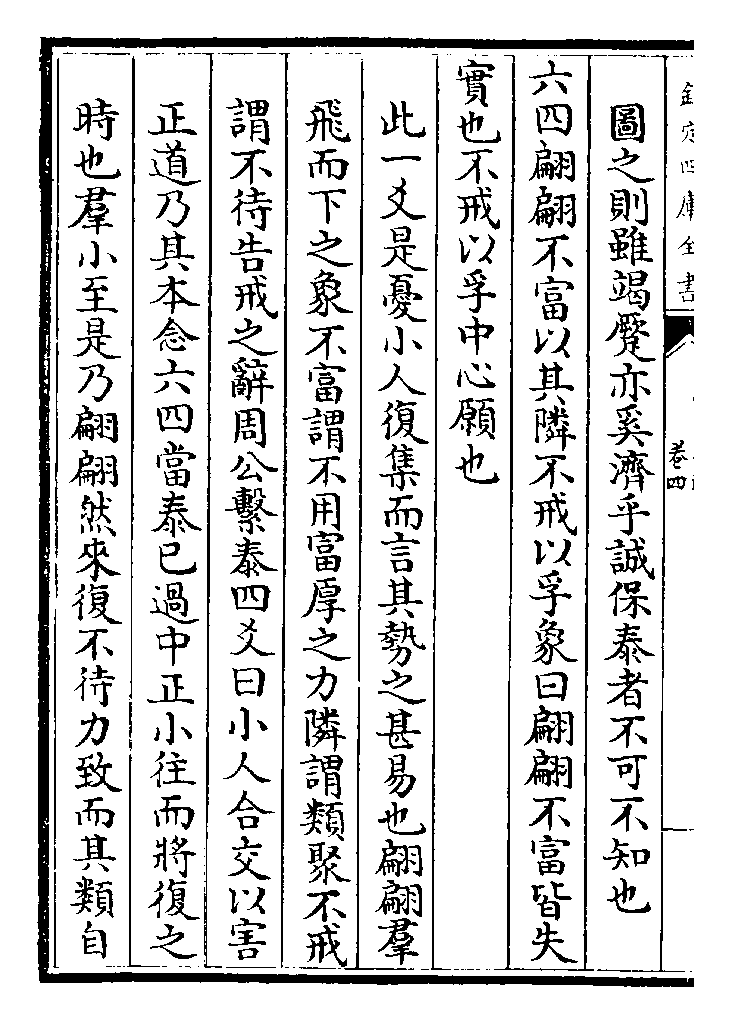 欽定四庫全書
卷四
圖之則雖竭蹷亦奚濟乎誠保泰者不可不知也
六四翩翩不富以其隣不戒以孚象曰翩翩不富皆失
實也不戒以孚中心願也
此一爻是憂小人復集而言其勢之甚易也翩翩羣
飛而下之象不富謂不用富厚之力隣謂類聚不戒
謂不待告戒之辭周公繫泰四爻曰小人合交以害
正道乃其本念六四當泰已過中正小往而將復之
時也羣小至是乃翩翩然來復不待力致而其類自